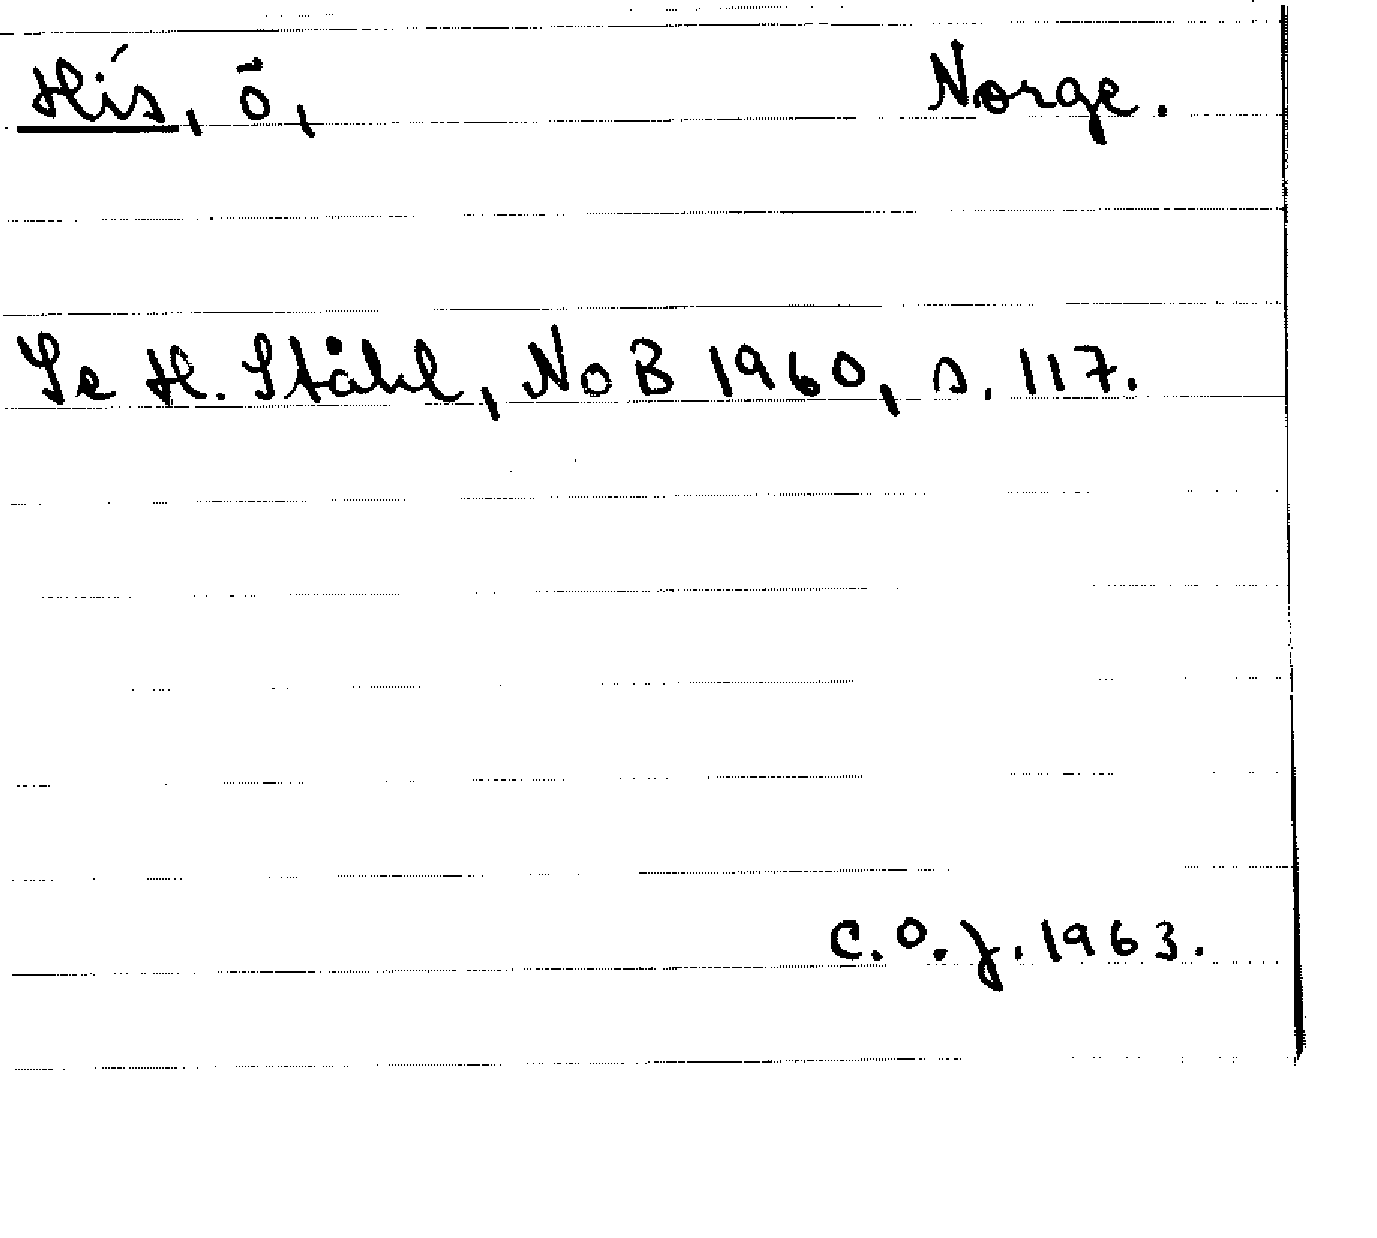 Hís, ö, Norge.
Se H. Ståhl, NoB 1960, s. 117.
C.O.J. 1963.